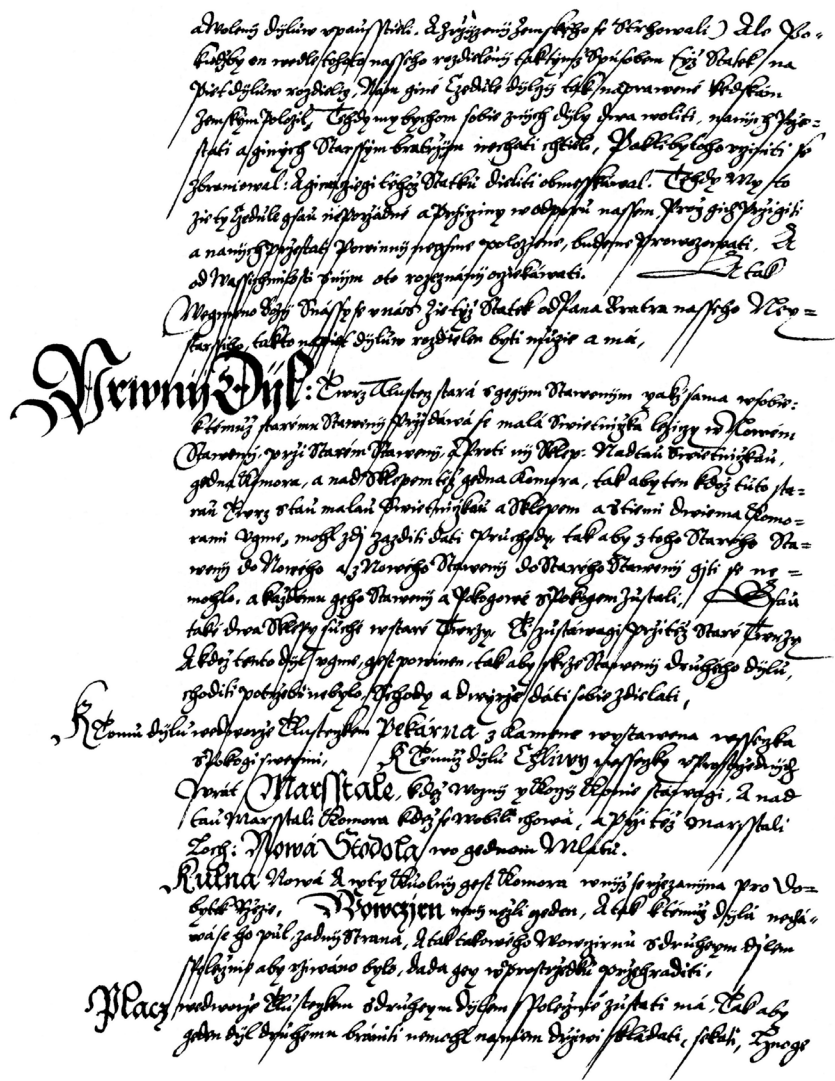 a Woleny dyluw wpausstieli. A zrzyzeny zemskeho se Strhowali) Ale Po-
kudzby on wedle tohoto nasseho rozdieleny taktymz Spusobem tyz Statek na
Piet dyluw rozdielicz, Nam gine Czedule dylczy tak naprawene ke dskam
Zemskym Polozil, Tehdy my bychom sobie z nich dyly dwa woliti, na nich Prze-
stati a ginych Starssym bratrzym nechati chtieli, Paklibytoho vcziniti se
zbraniowal: A ginaczegi tehoz Statku dieliti obmesskawal. Tehdy My to
zie ty Czedule gsau neporzadne a Prziczyny w odporu nassem, Procz gich Przigiti
a na nich Przestati Powinny negsme polozene, budeme Prowozowati, A
od Wassich milosti s nym oto rozeznany oczekawati. A tak
Wegmeno Bozy Snassy se v nas zie tyz Statek od Pana Bratra nasseho Ney-
starssiho, takto na piet dyluw rozdielen byti muozie a ma,
Prwnij Dijl: Twrz Tlustecz stara s gegym Stawenym yakz sama w sobie:
k temuz staremu Staweny Przydawa se mala Swietniczka lezyczy w Nowem
Staweny, przi Starem Staweny, A Proti ny Sklep: Nad tau Swietniczkau,
gedna Komora, a nad Sklepem tez gedna Komora, tak aby ten kdoz tuto sta-
rau Twrz s tau malau Swietniczkau a Sklepem a s tiemi dwiema Komo-
rami vgme, mohl zdj zazditi dati Pruchody, tak aby z toho Stareho Sta-
weny do Noweho a z Noweho Staweny do Stareho Staweny giti se ne-
mohlo. a kazdemu geho Staweny a Pokogowe s Pokogem zustali, Gsau
take dwa Sklepy suche w stare Twrzy, Ty zustawagi przi tez Stare Twrzy
A kdoz tento dyl vgme, gest powinen, tak aby skrze Staweny druheho dylu,
choditi potrzebi nebylo, Schody a dwyrze dati sobie zdielati,
K Tomu dylu we dworze Tlusteczkem Pekarna z Kamene wystawena wssecka
s Pokogi swegmi, K Temuz dylu Chliwy wssecky v Prostrzednich
Wrat Marsstale, kdez wozny y koczy Konie stawagi, A nad
tau Marsstali Komora kdez se wobili chowa, a przi tez Marsstali
Loch: Nowa Stodola wo gednom Mlatu.
Kulna Nowa A w ty Kuolny gest Komora w nyz se rzezanina pro Do-
bytek Rzeze, Wowczyrn neny nezli geden, A tak k temuz dylu necha-
wa se ho pul zadny Strana, A tak takoweho Wowczirnu s druheym dylem
spolecznie aby vziwano bylo, da da gey w prostrzedku przehraditi,
Placz we dworze Tlusteczkem s druheym dylem Spolecznie zustati ma, Tak aby
geden dyl druhemu braniti nemohl na niem drziwi skladati, sekati, Hnoge